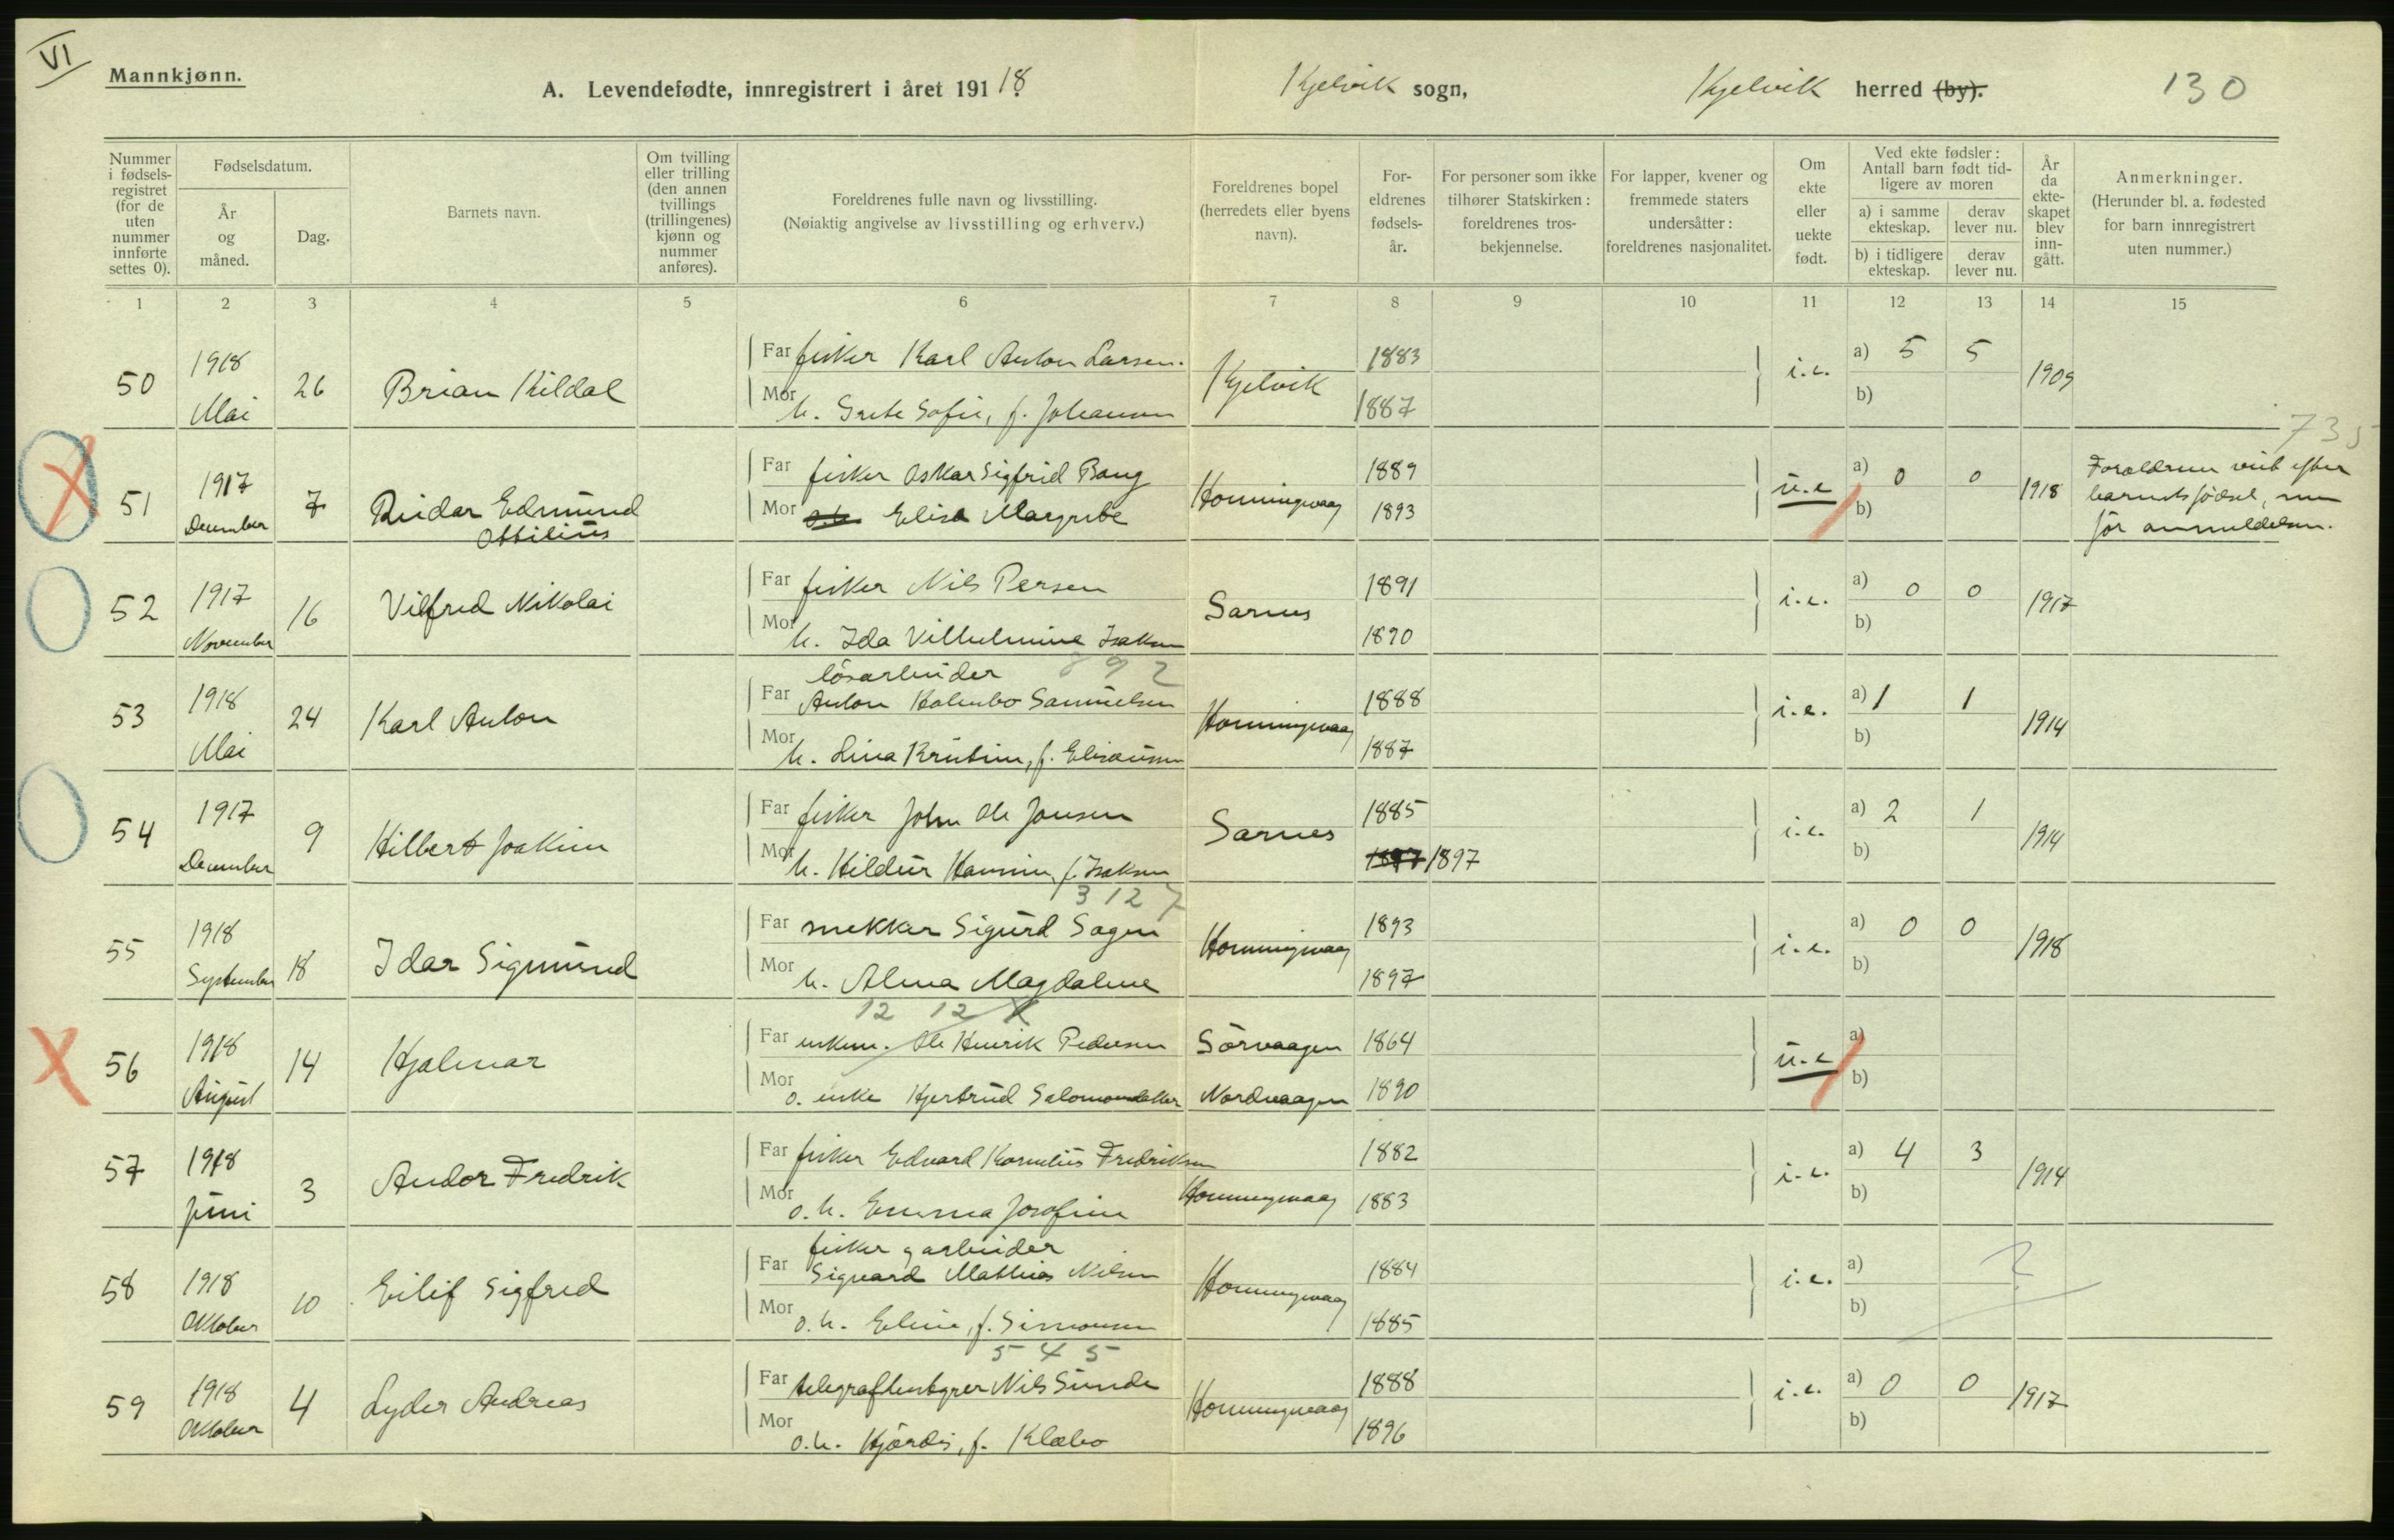 VI
Mannkjønn.
A. Levendefødte, innregistrert i året 191 18. Kjelvik sogn, Kjelvik herred (by). 130
Nummer i fødsels-registret (for de uten nummer innførte settes 0).
Fødselsdatum.
År og måned.
Dag.
Barnets navn.
Om tvilling eller trilling (den annen tvillings (trillingenes) kjønn og nummer anføres).
Foreldrenes fulle navn og livsstilling.
(Nøiaktig angivelse av livsstilling og erhverv.)
Foreldrenes bopel (herredets eller byens navn).
For-eldrenes fødsels-år.
For personer som ikke tilhører Statskirken: foreldrenes tros-bekjennelse.
For lapper, kvener og fremmede staters undersåtter: foreldrenes nasjonalitet.
Om ekte eller uekte født.
Ved ekte fødsler: Antall barn født tid-ligere av moren
a) i samme ekteskap.
derav lever nu.
b) i tidligere ekteskap.
derav lever nu.
År da ekte-skapet blev inn-gått.
Anmerkninger.
(Herunder bl. a. fødested for barn innregistrert uten nummer.)
1 2 3 4 5 6 7 8 9 10 11 12 13 14 15
50 1918 Mai 26 Brian Kildal
Far fisker Karl Anton Larsen. Kjelvik 1883 i.e. a) 5 5 1909
Mor h. Grete Sofie, f. Johansen 1887 b)
735
51 1917 December 7 Reidar Edmund Ottilius
Far fisker Oskar Sigfrid Bang Honningvaag 1889 u.e a) 0 0 1918 Forældrene viet efter
Mor o.h. Elisa Margrete 1893 b) barnets fødsel, men
før anmeldelsen.
52 1917 November 16 Vilfred Nikolai
Far fisker Nils Persen Sarnes 1891 i.e. a) 0 0 1917
Mor h. Ida Vilhelmine Isaksen 1890 b)
892
53 1918 Mai 24 Karl Anton
løsarbeider
Far Anton Kolenbo Samuelsen Honningvaag 1888 i.e. a) 1 1 1914
Mor h. Lina Kristine, f. Eliseussen 1887 b)
54 1917 December 9 Hilbert Joakim
Far fisker John Ole Jonsen Sarnes 1885 i.e. a) 2 1 1914
Mor h. Hildur Hannine, f. Isaksen 1897 b)
3127
55 1918 September 18 Idar Sigmund
Far snekker Sigurd Sagen Honningvaag 1893 i.e. a) 0 0 1918
Mor h. Alma Magdalene 1897 b)
12 12 X
56 1918 August 14 Hjalmar
Far enkem. Ole Henrik Pedersen Sørvaagen 1864 u.e a)
Mor o. enke Hjertrud Salomonsdatter Nordvaagen 1890 b)
57 1918 Juni 3 Andor Fredrik
Far fisker Edvard Kornelius Fredriksen 1882 i.e. a) 4 3 1914
Mor o.h. Emma Josofine Honningvaag 1883 b)
58 1918 Oktober 10 Eilif Sigfred
fisker g arbeider
Far Sigvard Mathias Nilsen Honningvaag 1884 i.e. a) ?
Mor o.h. Eline, f. Simonsen 1885 b)
545
59 1918 Oktober 4 Lyder Andreas
Far telegrafbestyrer Nils Sunde Honningvaag 1888 i.e. a) 0 0 1917
Mor o.h. Hjørdis, f. Klæbo 1896 b)